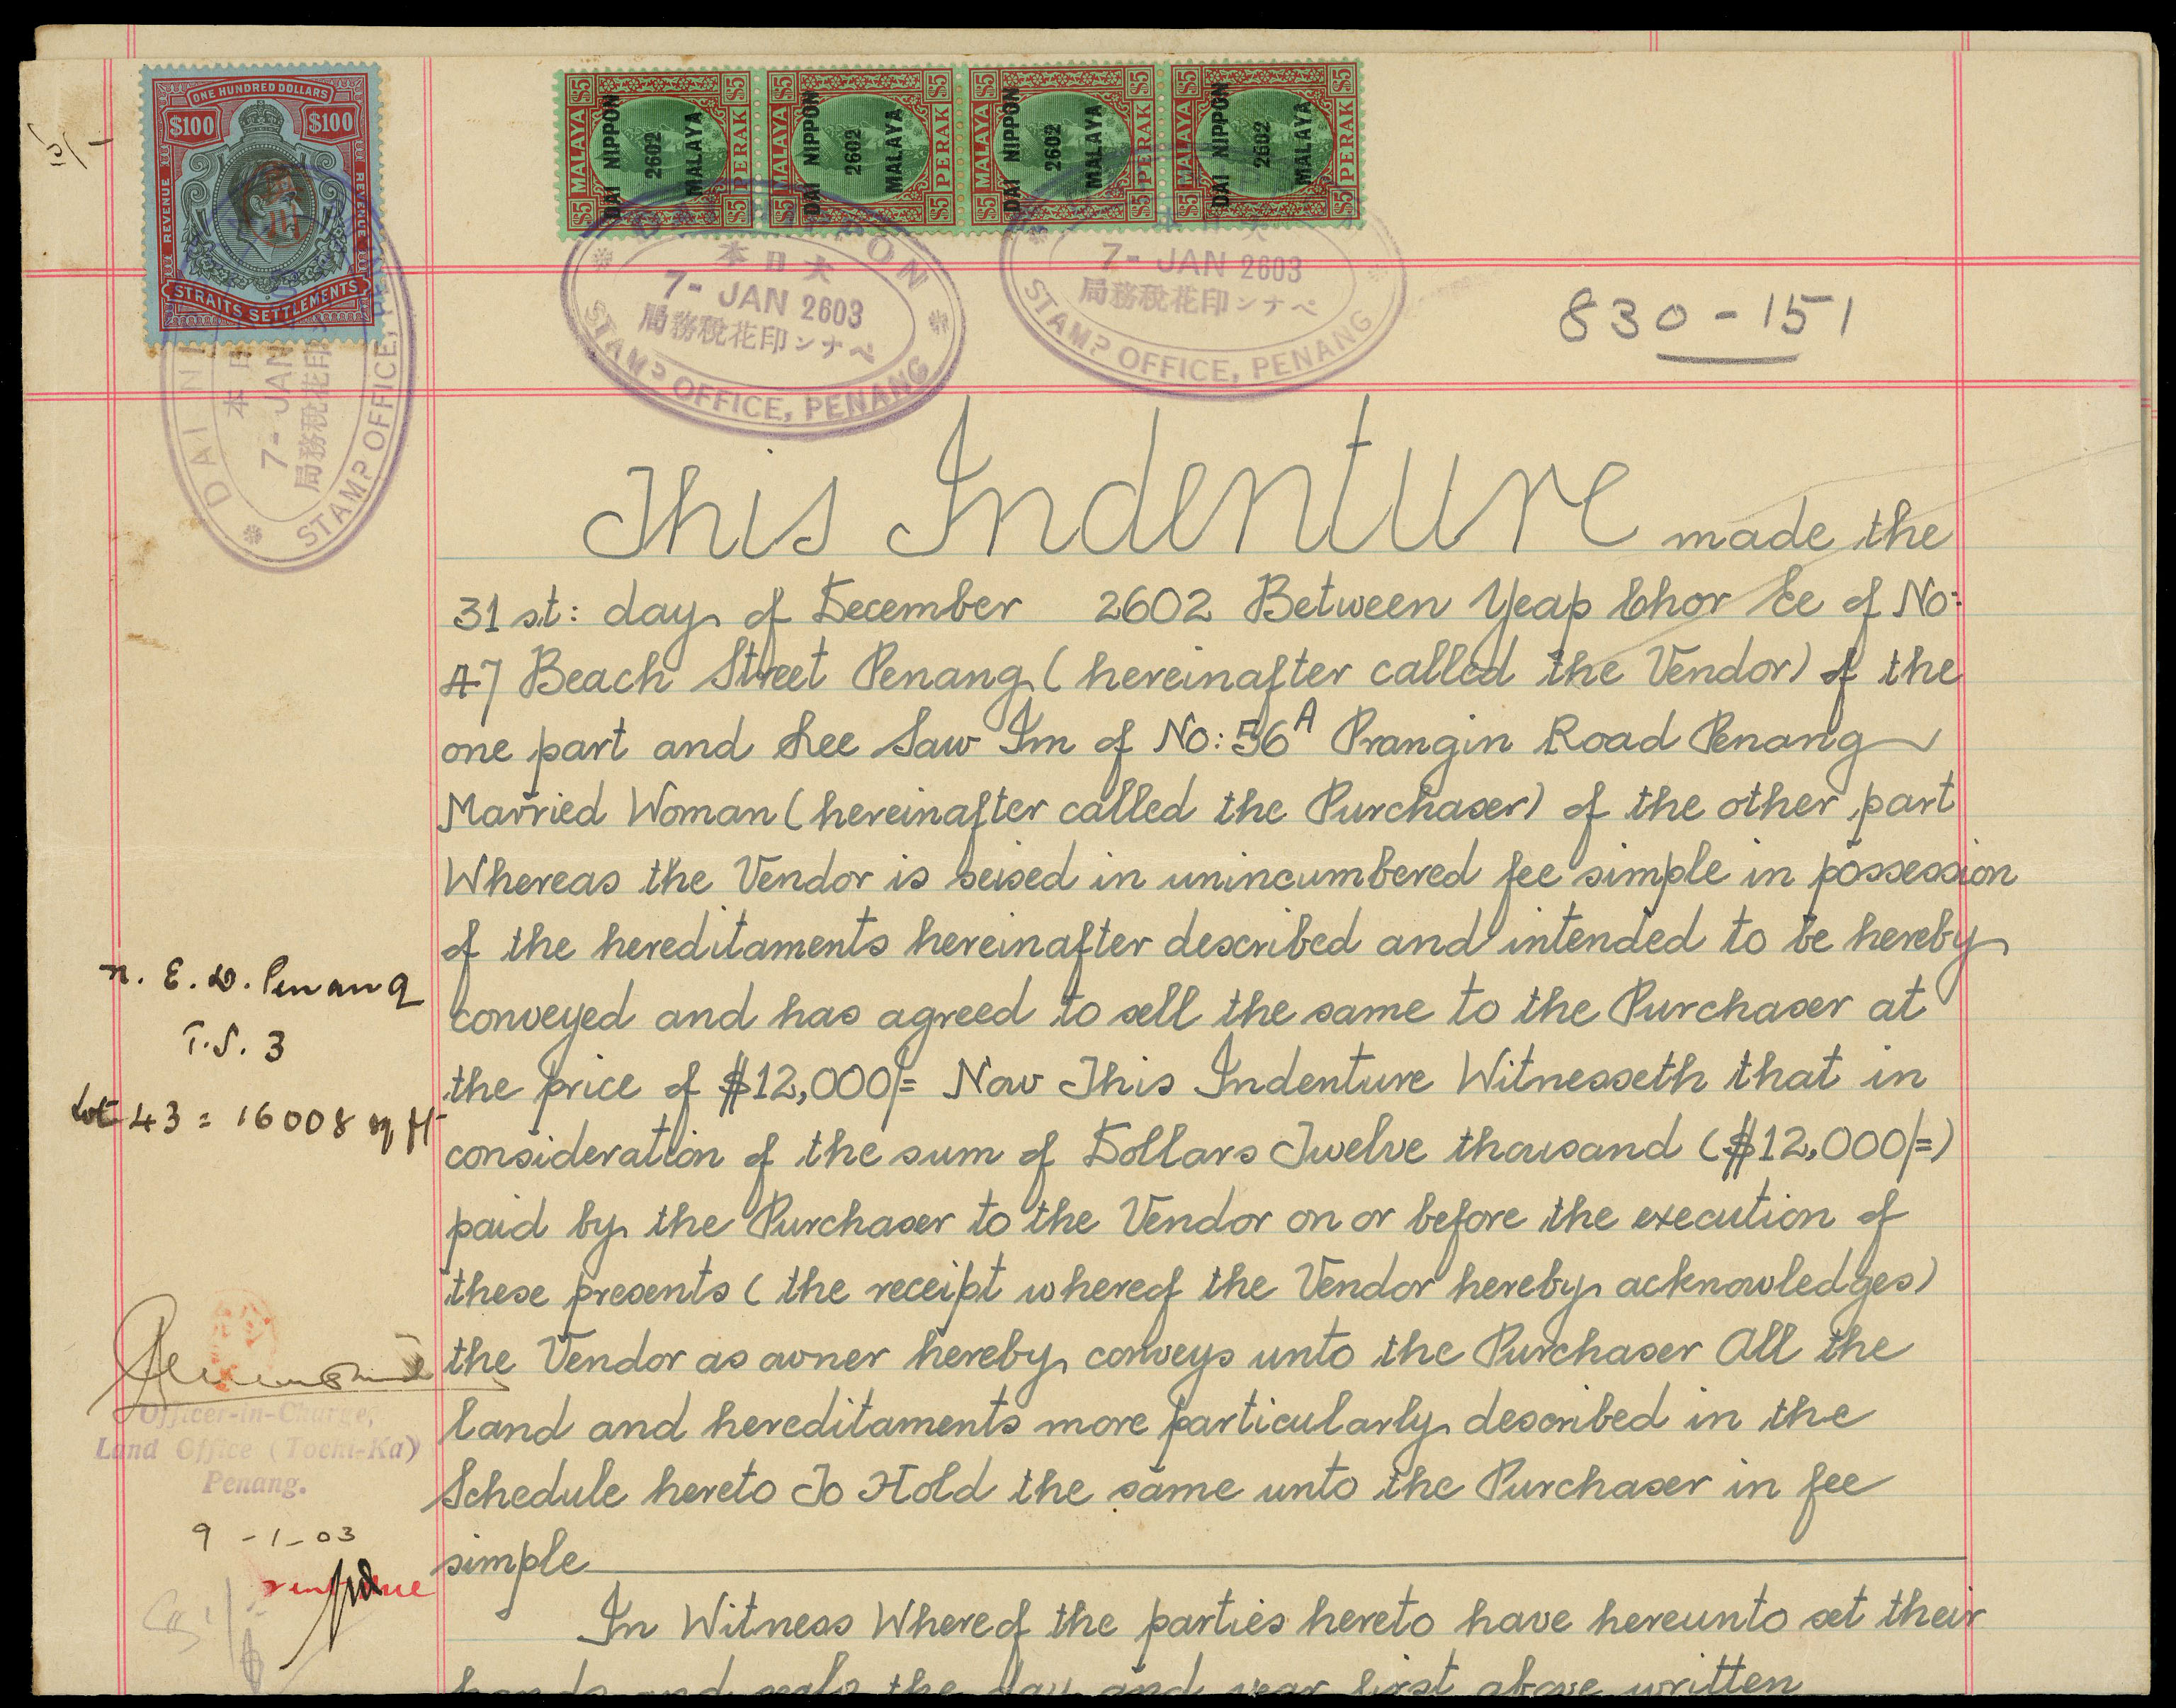 5/-
ONE HUNDRED DOLLARS
$100 $100
REVENUE REVENUE
STRAITS SETTLEMENTS
MALAYA $5 $5 PERAK $5 $5
DAI NIPPON
2602
MALAYA
MALAYA $5 $5 PERAK $5 $5
DAI NIPPON
2602
MALAYA
MALAYA $5 $5 PERAK $5 $5
DAI NIPPON
2602
MALAYA
MALAYA $5 $5 PERAK $5 $5
DAI NIPPON
2602
MALAYA
DAI NI
本日
7 - JAN
局務税花印
STAMP OFFICE, PE
DAI NIPPON
本日大
7 - JAN 2603
局務税花印ンナペ
STAMP OFFICE, PENANG
本日大
7 - JAN 2603
局務税花印ンナペ
STAMP OFFICE, PENANG
830-151
This Indenture made the
31st: day of December 2602 Between Yeap Chor Ee of No:
47 Beach Street Penang (hereinafter called the Vendor) of the
one part and Lee Saw Im of No: 56A Prangin Road Penang
Married Woman (hereinafter called the Purchaser) of the other part
Whereas the Vendor is seised in unincumbered fee simple in possession
of the hereditaments hereinafter described and intended to be hereby
conveyed and has agreed to sell the same to the Purchaser at
the price of $12,000/= Now This Indenture Witnesseth that in
consideration of the sum of Dollars Twelve thousand ($12,000/=)
paid by the Purchaser to the Vendor on or before the execution of
these presents (the receipt whereof the Vendor hereby acknowledges)
the Vendor as owner hereby conveys unto the Purchaser All the
land and hereditaments more particularly described in the
Schedule hereto To Hold the same unto the Purchaser in fee
simple
In Witness Whereof the parties hereto have hereunto set their
hands and seals the day and year first above written
N. E. D. Penang
T.S. 3
Lot 43 = 16008 sq ft
Officer-in-Charge,
Land Office (Tochi-Ka)
Penang.
9-1-03